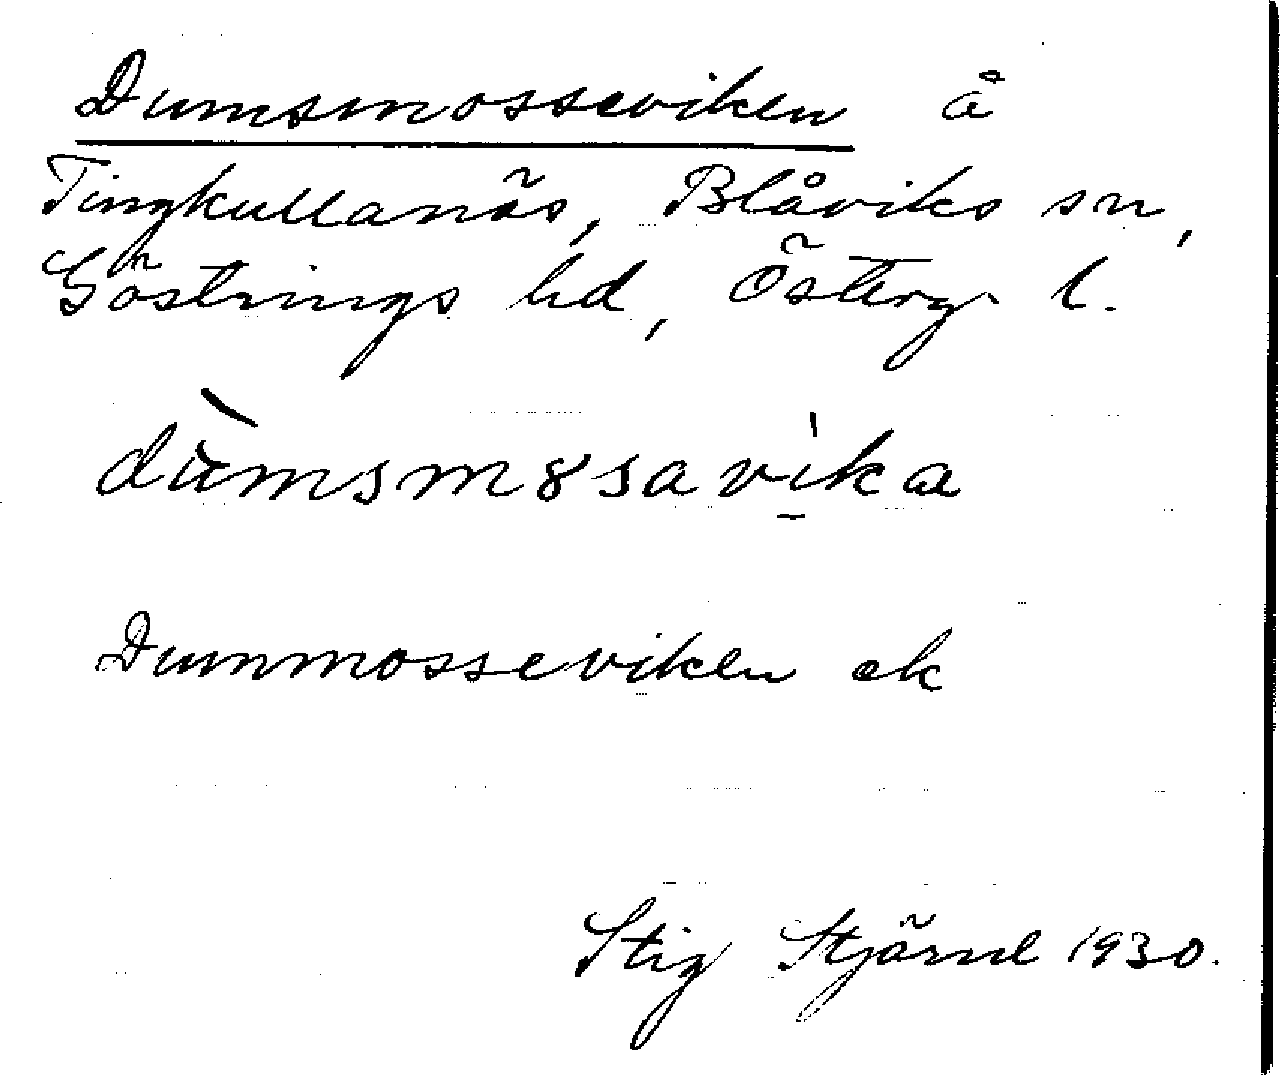 Dumsmosseviken å
Tingkullanäs, Blåviks sn,
Göstrings hd, Österg. l.
dùmsm8savi̠ka
Dummosseviken ek
Stig Stjärnl 1930.